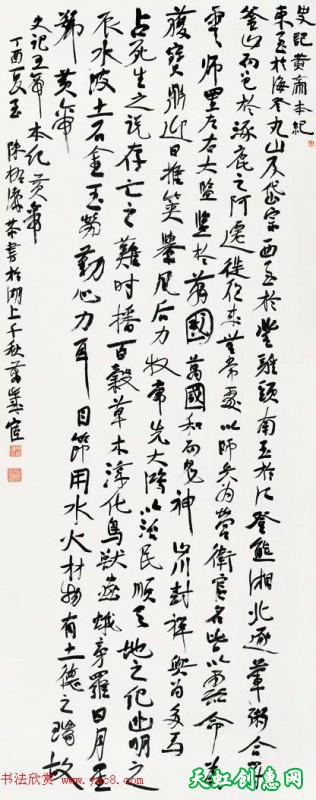 史記黃帝本紀
東至於海登丸山及岱宗西至於空雞頭南至於江登熊湘北逐葷粥合符
釜山而邑於涿鹿之阿遷徙往來無常處以師兵為營衛官名皆以雲命為
雲師置左右大監監於萬國萬國和而鬼神山川封禪與為多焉
獲寶鼎迎日推筴舉風后力牧常先大鴻以治民順天地之紀幽明之
占死生之說存亡之難時播百穀草木淳化鳥獸蟲蛾旁羅日月星
辰水波土石金玉勞勤心力耳目節用水火材物有土德之瑞故
號黃帝
史記五帝本紀黃帝
丁酉夏至
書於湖上千秋
书法欣赏
www.yac8.com
天虹创意网